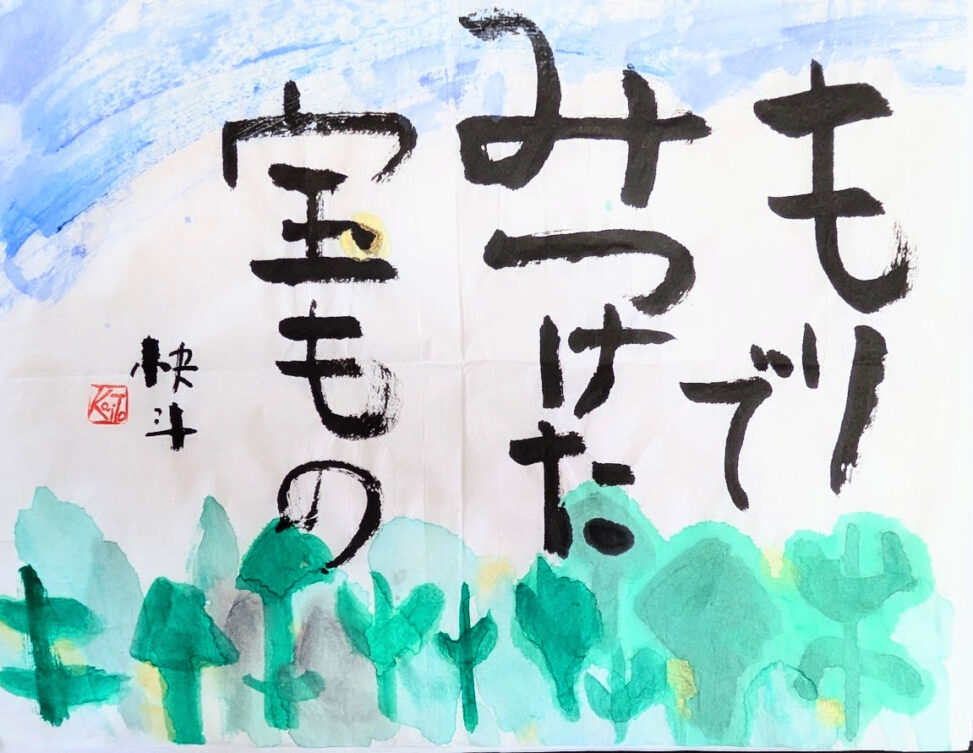 もりで
みつけた
宝もの
快斗
KaiTo